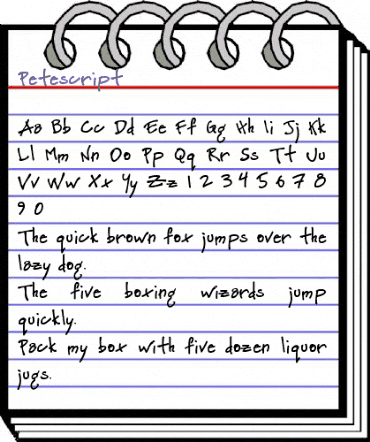 Petescript
Aa Bb Cc Dd Ee Ff Gg Hh Ii Jj Kk
Ll Mm Nn Oo Pp Qq Rr Ss Tt Uu
Vv Ww Xx Yy Zz 1 2 3 4 5 6 7 8
9 0
The quick brown fox jumps over the
lazy dog.
The five boxing wizards jump
quickly.
Pack my box with five dozen liquor
jugs.